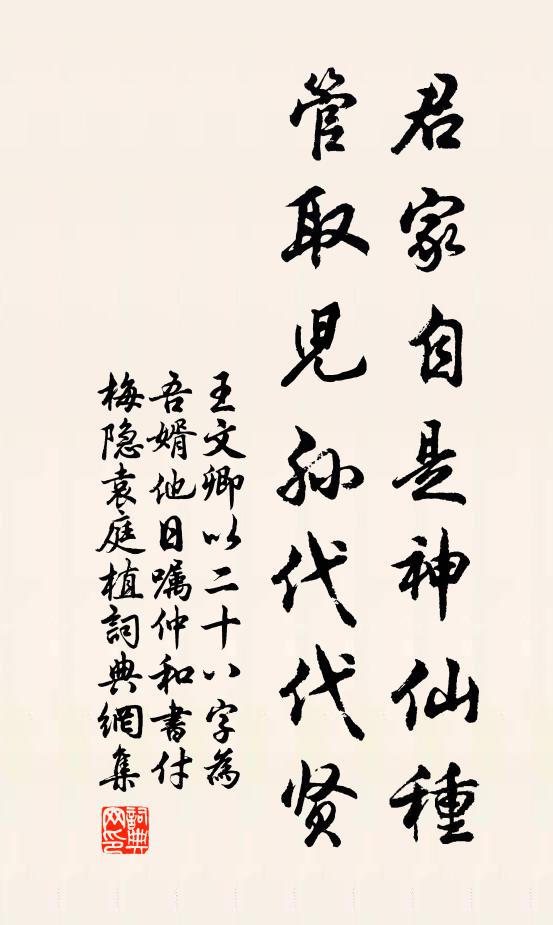 君家自是神仙種
管取児孙代代贤
王文卿以二十八字為
吾婿他日嘱仲和書付
梅隐袁庭植詞典網集
詞典網印